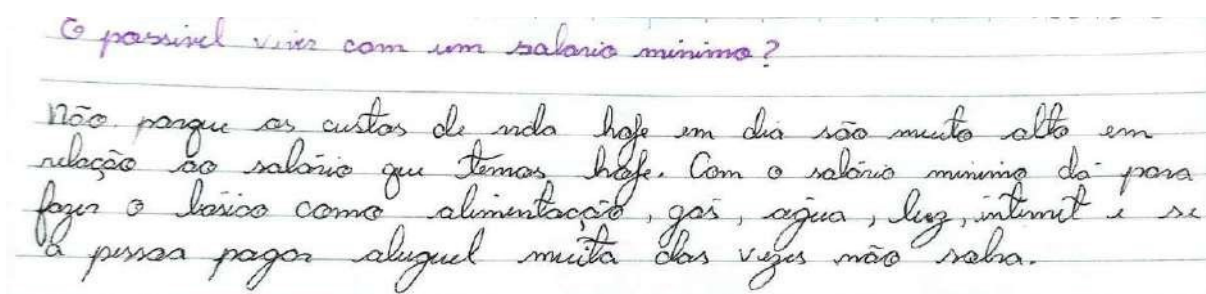 É possivel viver com um salario minimo?
Não porque os custos de vida hoje em dia são muito alto em
relação ao salário que temos hoje. Com o salário minimo dá para
fazer o básico como alimentação, gás, água, luz, internet e se
a pessoa pagar aluguel muita das vezes não sobra.